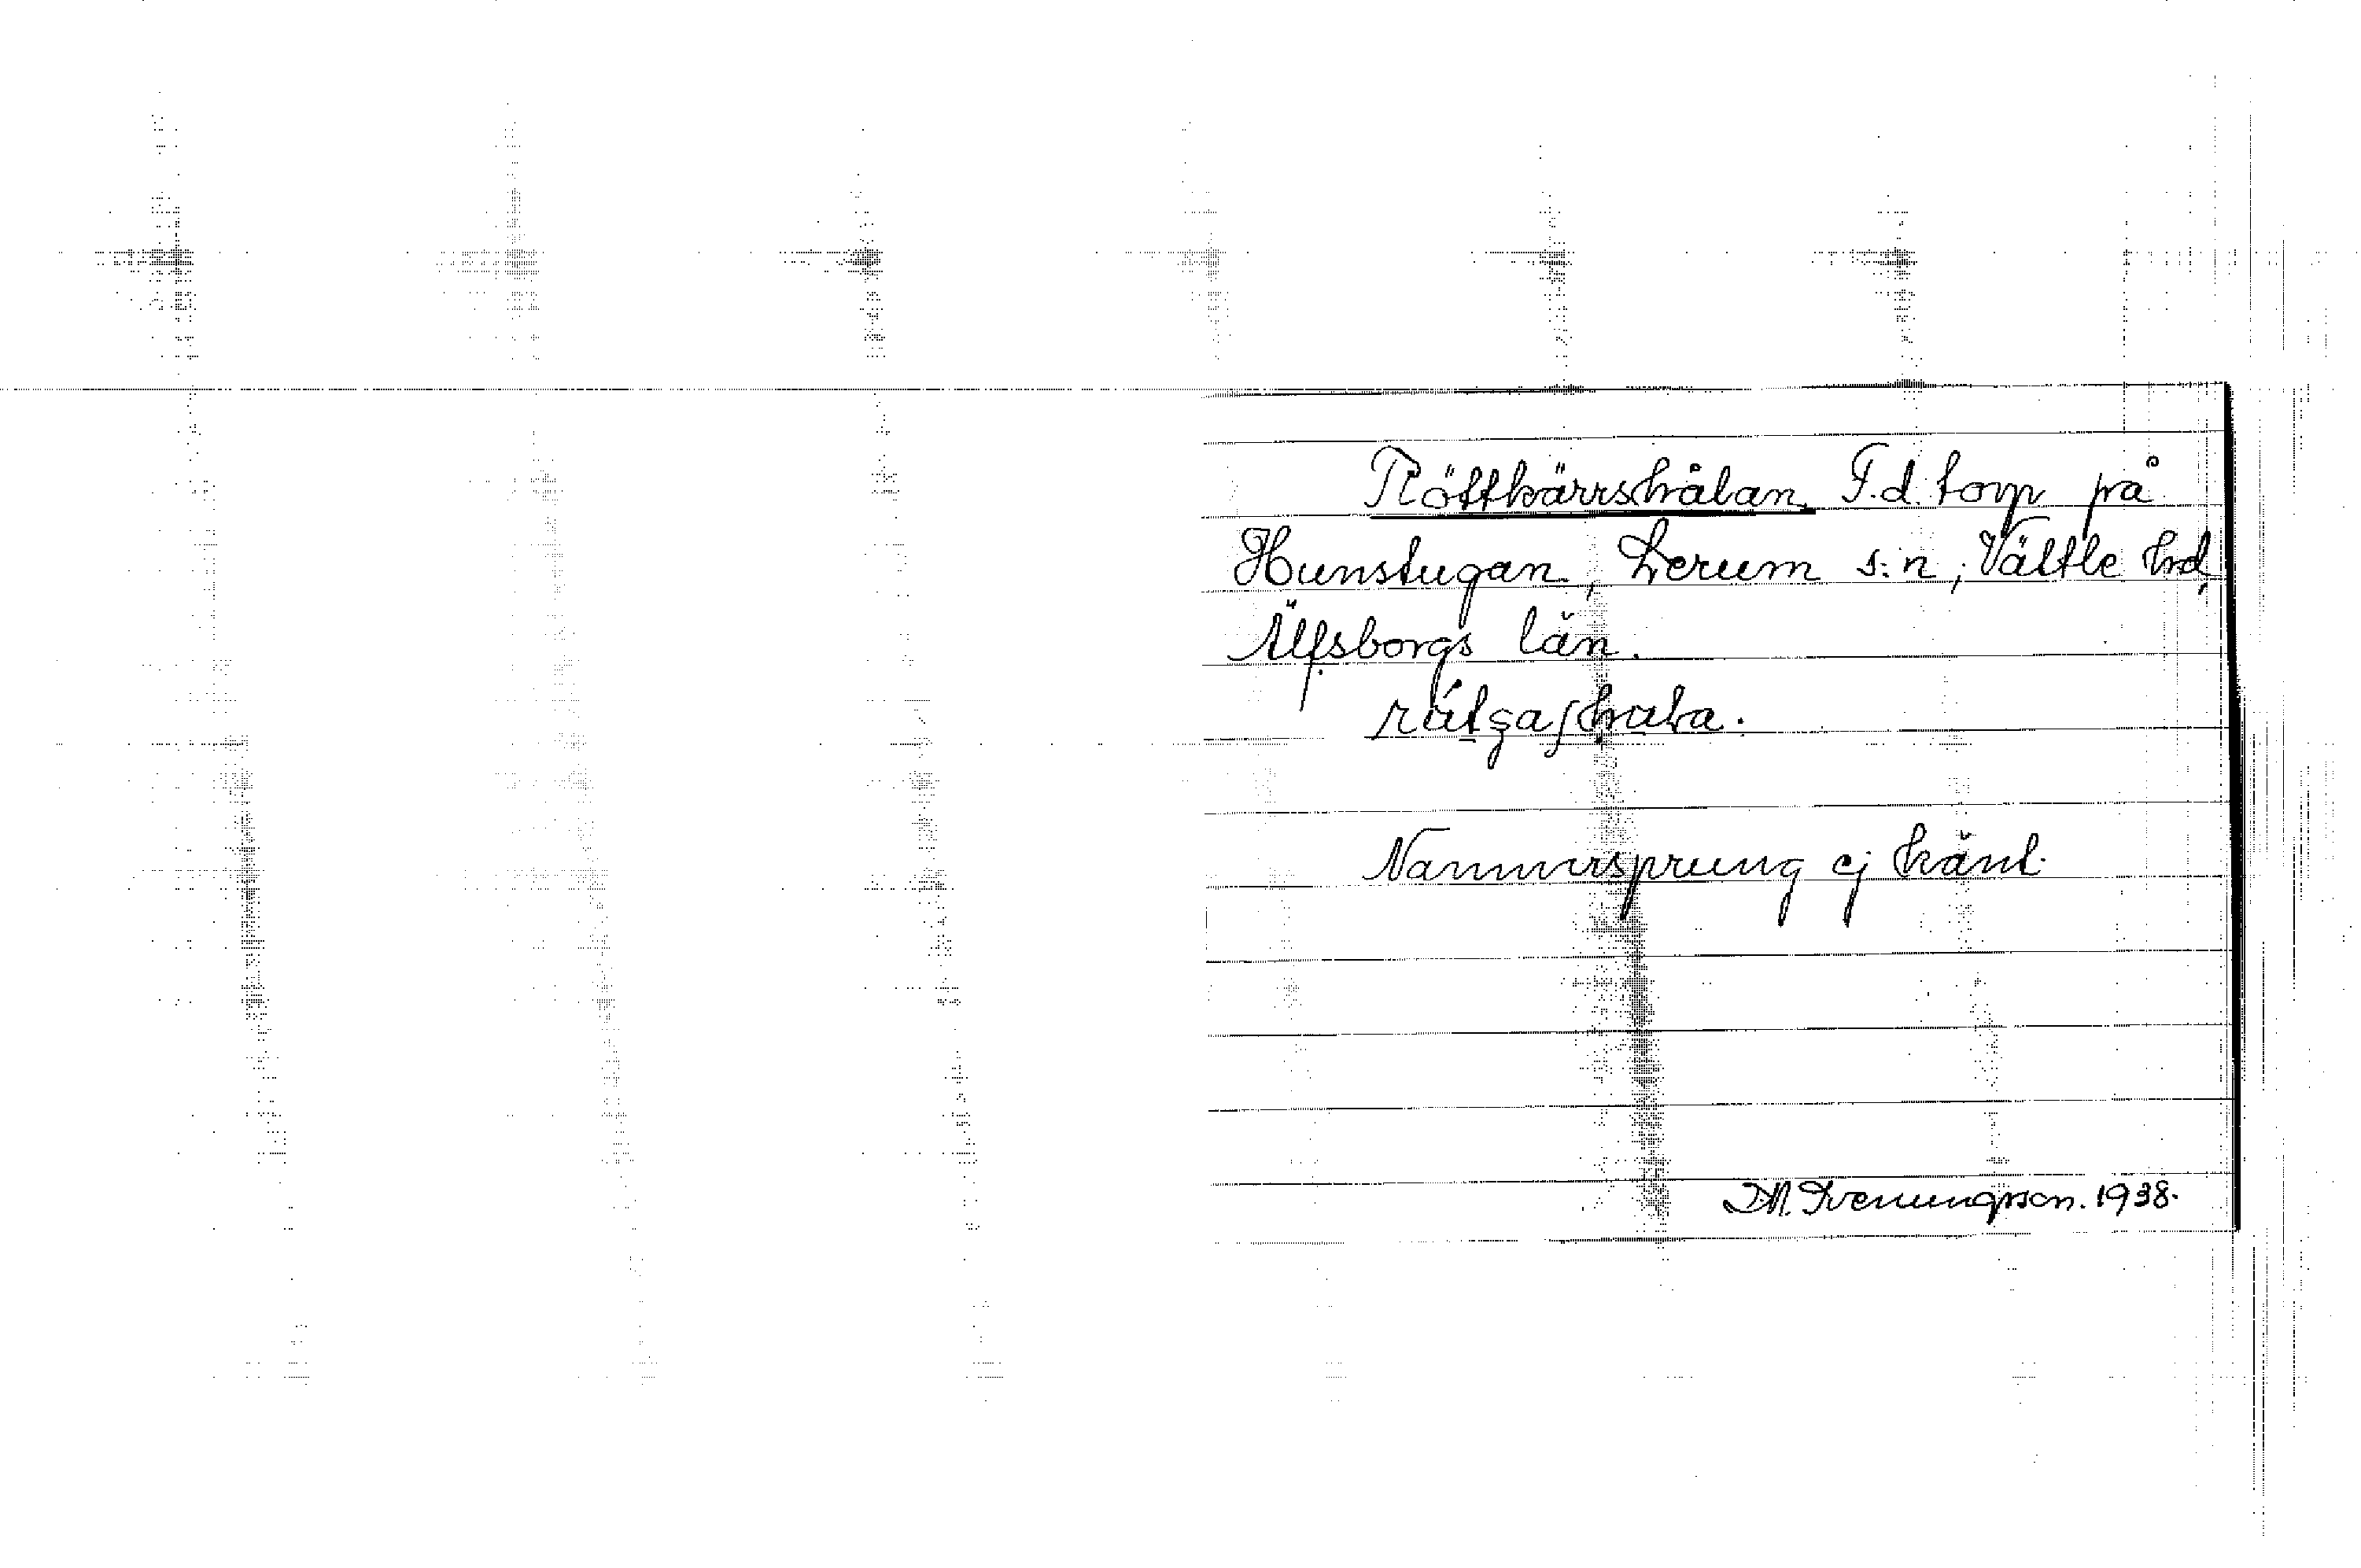 Röttkärrshålan. F.d. torp på
Hunstugan, Lerum s:n, Vättle hrd,
Älfsborgs län.
Namnursprung ej känt.
D.N. Svenungsson. 1938.